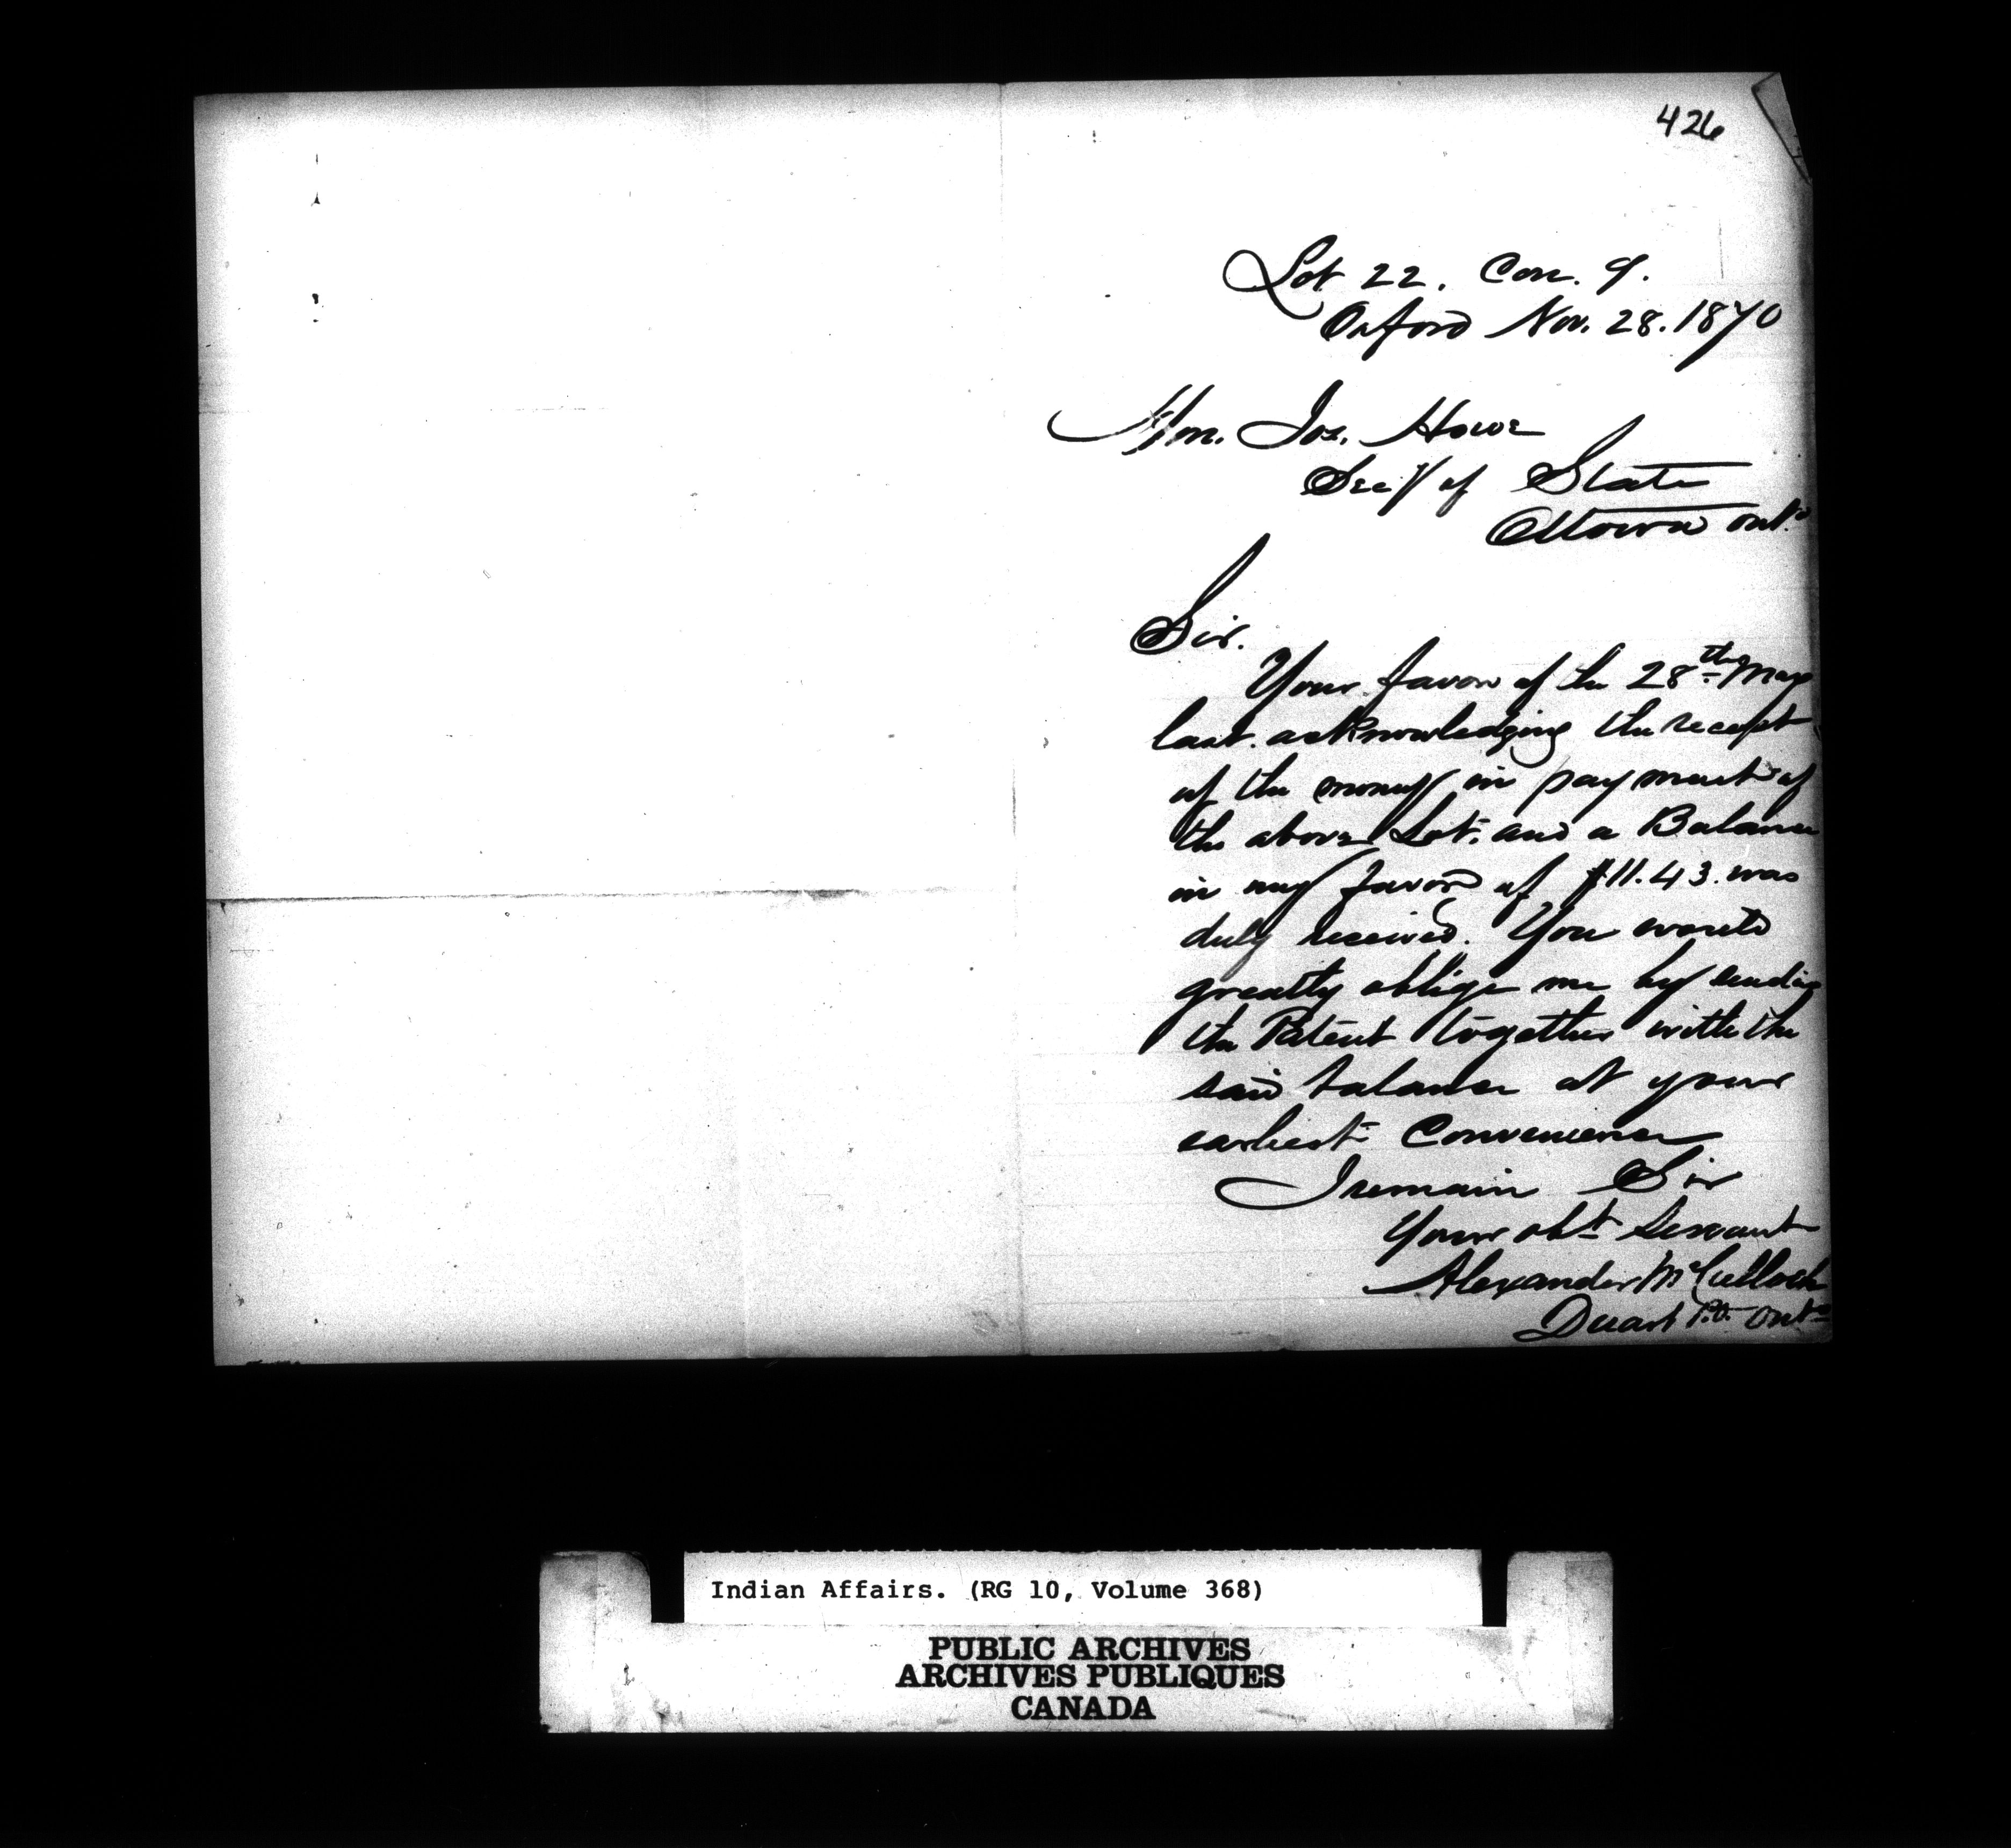 426
Lot 22. Con. 9.
Oxford Nov. 28. 1870
Hon. Jos. Howe
Sec'y of State
Ottawa Ont.o
Sir.
Your favor of the 28th May
last. acknowledging the receipt
of the money in payment of
the above Lot. and a Balance
in my favor of $11.43. was
duly received. You would
greatly oblige me by sending
the Patent together with the
said balance at your
earliest Convenience
I remain Sir
Your obt Servant
Alexander McCulloch
Duart P.O. Onto
Indian Affairs. (RG 10, Volume 368)
PUBLIC ARCHIVES
ARCHIVES PUBLIQUES
CANADA